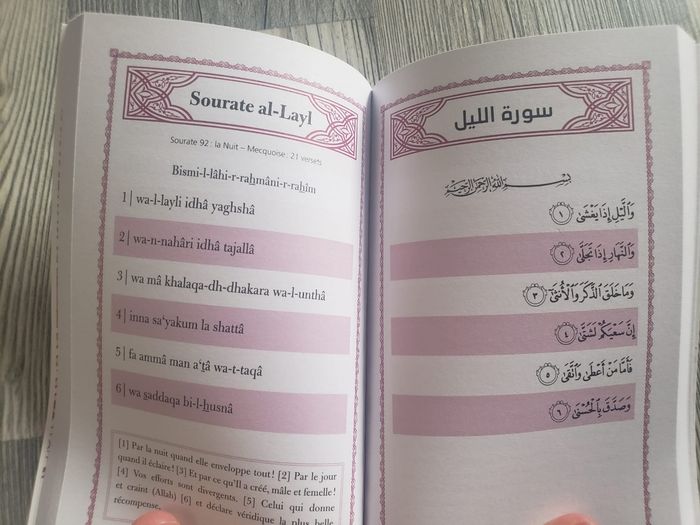 Sourate al-Layl
Sourate 92 : la Nuit – Mecquoise : 21 versets
Bismi-l-lâhi-r-rahmâni-r-rahîm
1 | wa-l-layli idhâ yaghshâ
2 | wa-n-nahâri idhâ tajallâ
3 | wa mâ khalaqa-dh-dhakara wa-l-unthâ
4 | inna sa‘yakum la shattâ
5 | fa ammâ man a‘tâ wa-t-taqâ
6 | wa saddaqa bi-l-husnâ
[1] Par la nuit quand elle enveloppe tout ! [2] Par le jour
quand il éclaire ! [3] Et par ce qu'Il a créé, mâle et femelle !
[4] Vos efforts sont divergents. [5] Celui qui donne
et craint (Allah) [6] et déclare véridique la plus belle
récompense,
سورة الليل
بِسْمِ اللَّهِ الرَّحْمَٰنِ الرَّحِيمِ
وَالَّيْلِ إِذَا يَغْشَىٰ ١
وَالنَّهَارِ إِذَا تَجَلَّىٰ ٢
وَمَا خَلَقَ الذَّكَرَ وَالْأُنثَىٰ ٣
إِنَّ سَعْيَكُمْ لَشَتَّىٰ ٤
فَأَمَّا مَنْ أَعْطَىٰ وَاتَّقَىٰ ٥
وَصَدَّقَ بِالْحُسْنَىٰ ٦